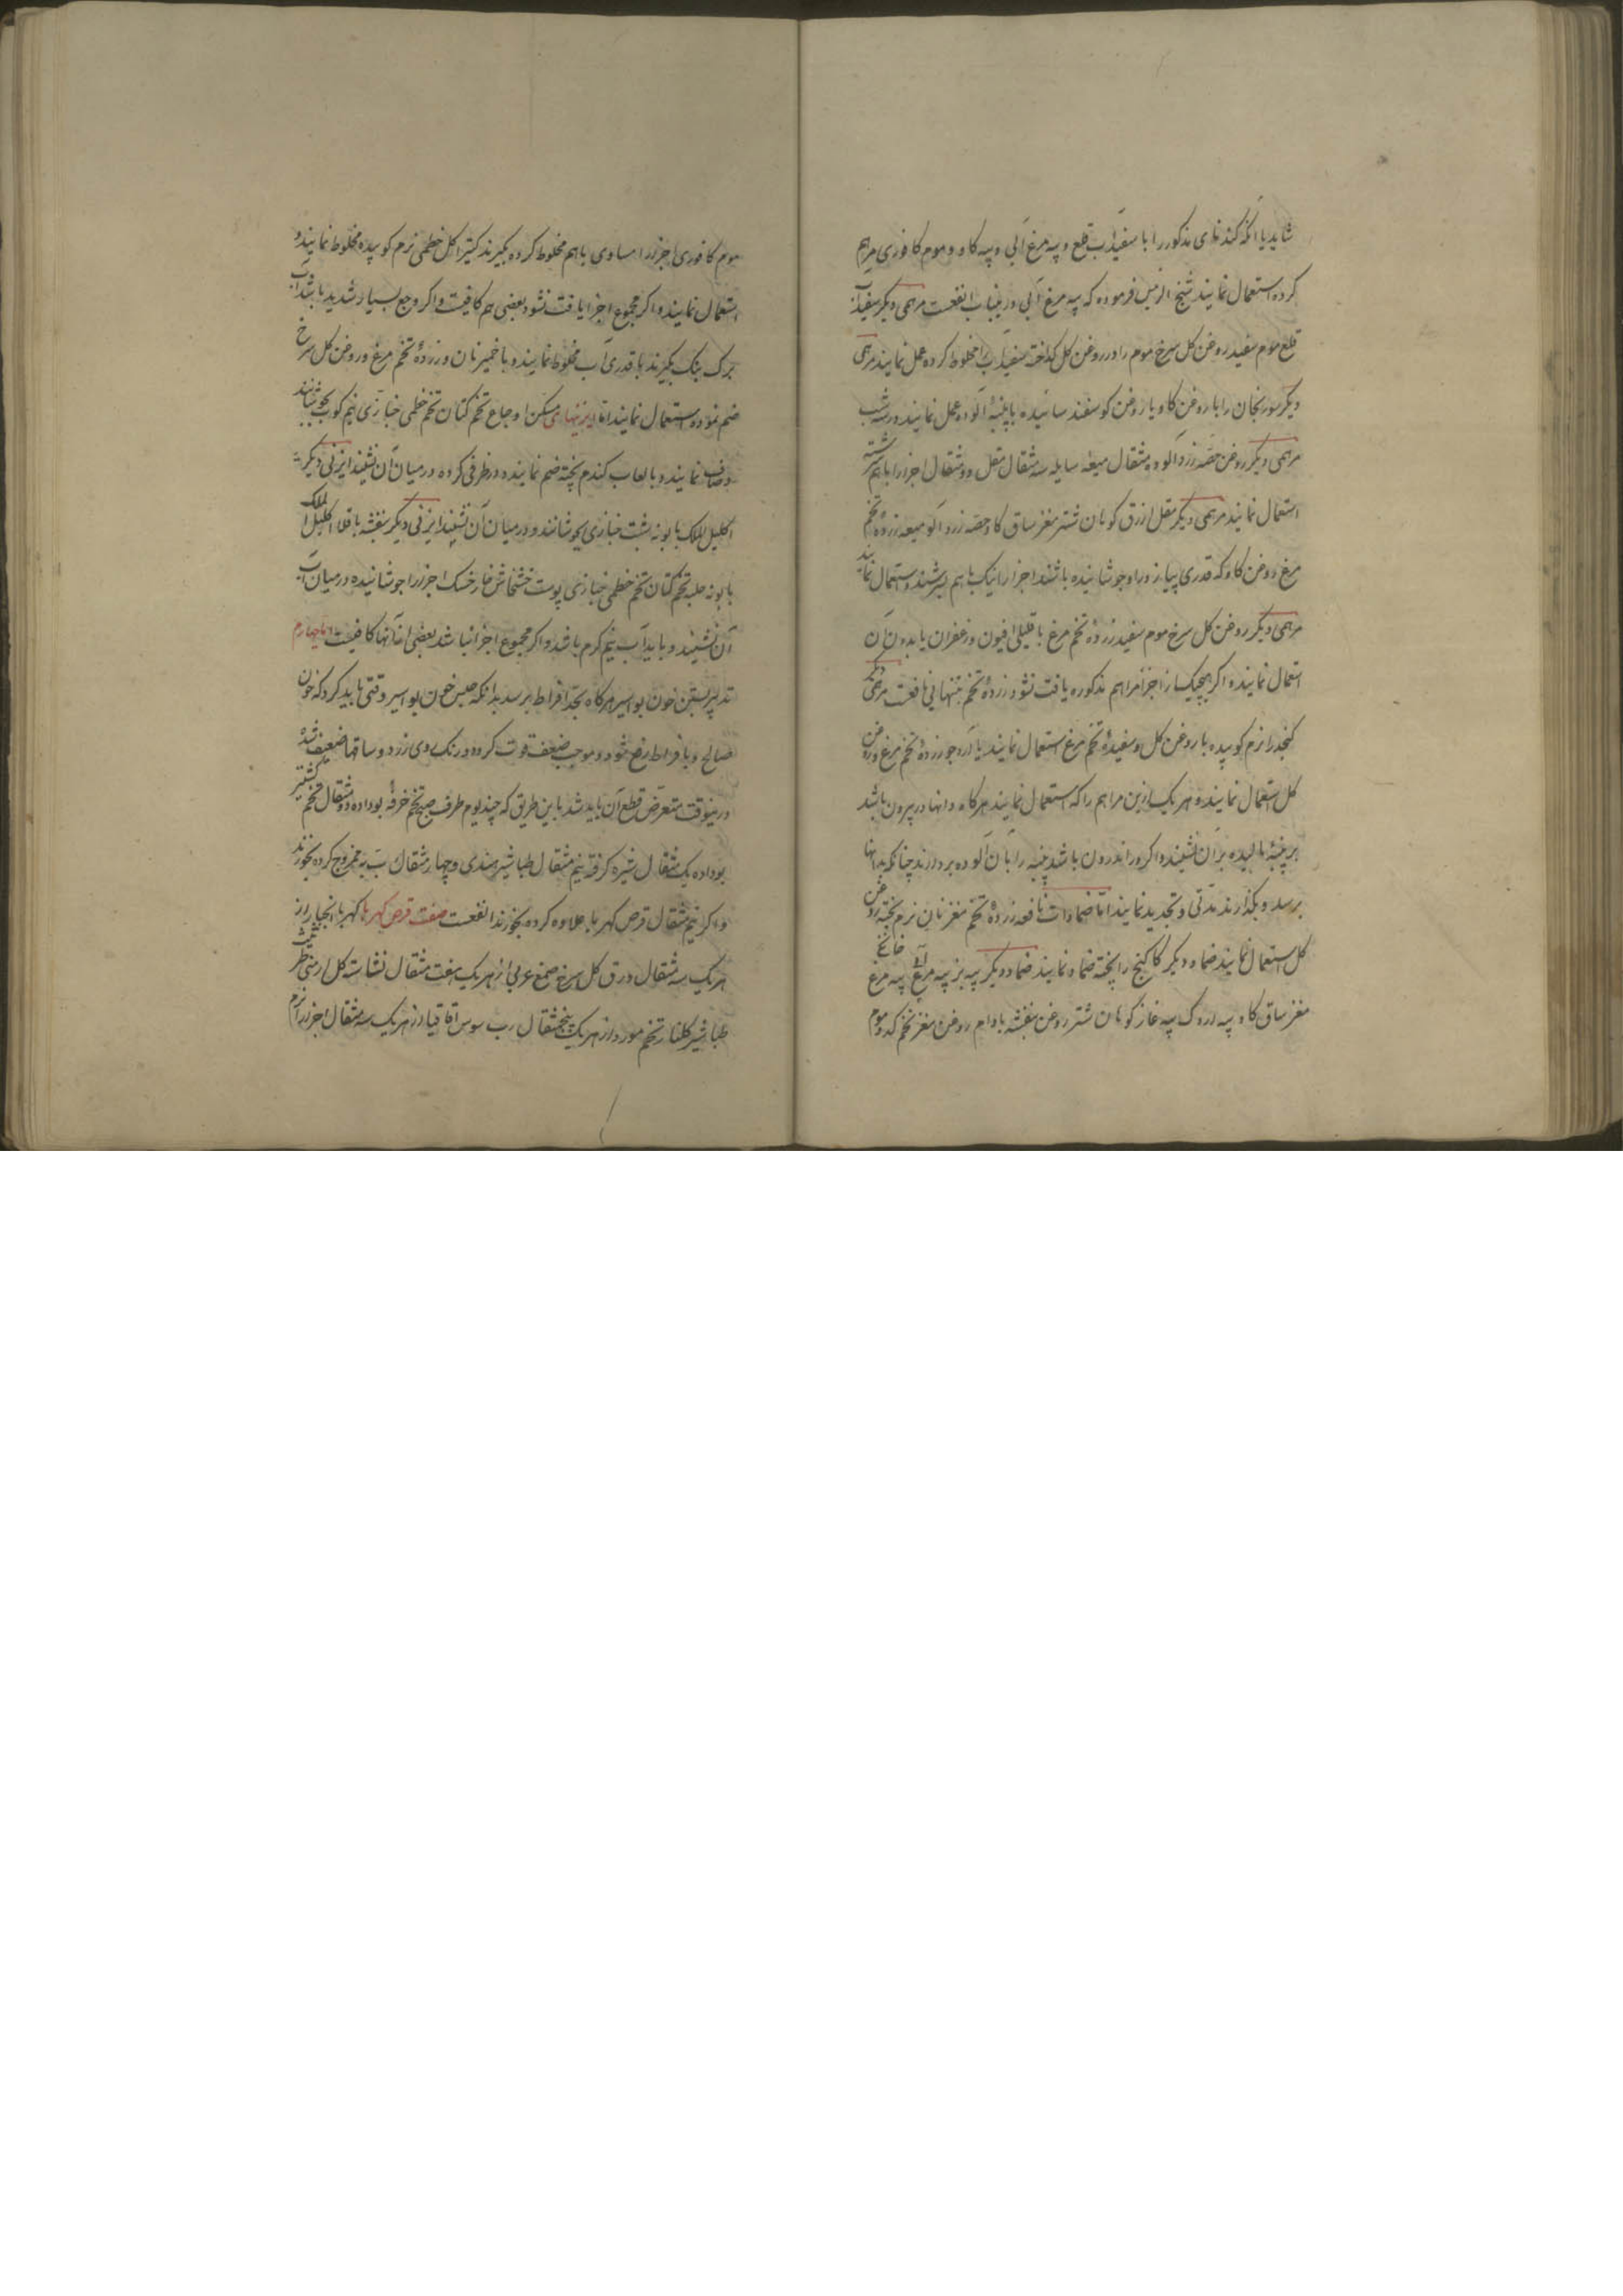 شاید یا آنکه کندنای مذکور را با سفیداب قلع و پیه مرغ آبی و پیه کاو و موم کافوری مرهم
کرده استعمال نمایند شیخ الرئیس فرموده که پیه مرغ آبی درینباب انفعست مرهمی دیکر سفیداب
قلع موم سفید روغن کل سرخ موم را در روغن کل کداخته سفیداب را مخلوط کرده عمل نمایند مرهمی
دیکر سورنجان را با روغن کاو یا روغن کوسفند سائیده با پنبهٔ آلوده عمل نمایند در سه شب
مرهمی دیکر روغن خسته زردآلو ده مثقال میعه سایله سه مثقال مقل دو مثقال اجزا را باهم سرشته
استعمال نمایند مرهمی دیکر مقل ازرق کوهان شتر مغز ساق کاو خسته زردآلو میعه زردهٔ تخم
مرغ روغن کاو که قدری پیاز در او جوشانیده باشند اجزا را نیک باهم بسرشند و استعمال نمایند
مرهمی دیکر روغن کل سرخ موم سفید زردهٔ تخم مرغ با قلیلی افیون و زعفران یا بدون آن
استعمال نمایند و اکر هیچیک از اجزا مراهم مذکوره یافت نشود زردهٔ تخم بتنهایی نافعست مرهمی دیکر
کنجد را نرم کوبیده با روغن کل و سفیدهٔ تخم مرغ استعمال نمایند یا آرد جو زردهٔ تخم مرغ و روغن
کل استعمال نمایند و هر یک ازین مراهم را که استعمال نمایند هرکاه دانها در بیرون باشد
بر پنبهٔ مالیده بر آن نشینند و اکر در اندرون باشد پنبه را بآن آلوده بردارند چنانکه بدانها
برسد و بکذارند مدتی و تجدید نمایند امّا ضمادات نافعه زردهٔ تخم مغز نان نرم پخته روغن
کل استعمال نمایند ضماد دیکر کاکنج را پخته ضماد نمایند ضماد دیکر پیه بز پیه مرغ آبی پیه مرغ خانکی
مغز ساق کاو پیه اردک پیه غاز کوهان شتر روغن بنفشه بادام روغن مغز تخم کدو موم
موم کافوری اجزا را مساوی باهم مخلوط کرده بکیرند کتیرا کل خطمی نرم کوبیده مخلوط نمایند و
استعمال نمایند و اکر مجموع اجزا یافت نشود بعضی هم کافیست و اکر وجع بسیار شدید باشد آب
برک بنک بکیرند با قدری آب مخلوط نمایند و با خمیر نان و زردهٔ تخم مرغ و روغن کل سرخ
ضم نموده استعمال نمایند امّا ابزنهای مسکن اوجاع تخم کتان تخم خطمی خبازی نیم کوب بجوشانند
و صاف نمایند و با لعاب کندم پخته ضم نمایند و در ظرفی کرده در میان آن نشینند ابزنی دیکر
اکلیل الملک بابونه شبت خبازی بجوشانند و در میان آن نشینند ابزنی دیکر بنفشه باقلا اکلیل الملک
بابونه حلبه تخم کتان تخم خطمی خبازی پوست خشخاش خارخسک اجزا را جوشانیده در میان آب
آن نشینند و باید آب نیم کرم باشد و اکر مجموع اجزا نباشد بعضی از آنها کافیست
تدبیر بستن خون بواسیر هرکاه بحدّ افراط برسد بدانکه حبس خون بواسیر وقتی باید کرد که خون
صالح و بافراط دفع شود و موجب ضعف قوت کرده و رنک روی زرد و ساقها ضعیف شده
درینوقت متعرّض قطع آن باید شد باین طریق که چند یوم طرف صبح تخم خرفه بوداده دو مثقال تخم کشنیز
بوداده یک مثقال شیره کرفته نیم مثقال طباشیر هندی و چهار مثقال ربّ به ممزوج کرده بخورند
و اکر نیم مثقال قرص کهربا علاوه کرده بخورند انفعست صفت قرص کهربا کهربا انجبار از
هر یک سه مثقال ورق کل سرخ صمغ عربی از هر یک هفت مثقال نشاسته کل ارمنی
طباشیر کلنار تخم مورد از هر یک پنجمثقال رب سوس اقاقیا از هر یک سه مثقال اجزا را نرم